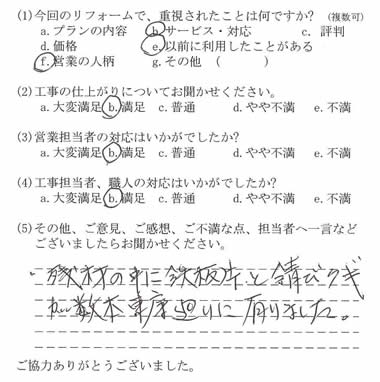 (1)今回のリフォームで、重視されたことは何ですか? (複数可)
a.プランの内容 b.サービス・対応 c. 評判
d.価格 e.以前に利用したことがある
f.営業の人柄 g.その他 ( )
(2)工事の仕上がりについてお聞かせください。
a.大変満足 b.満足 c.普通 d.やや不満 e.不満
(3)営業担当者の対応はいかがでしたか?
a.大変満足 b.満足 c.普通 d.やや不満 e.不満
(4)工事担当者、職人の対応はいかがでしたか?
a.大変満足 b.満足 c.普通 d.やや不満 e.不満
(5)その他、ご意見、ご感想、ご不満な点、担当者へ一言など
ございましたらお聞かせください。
・残材の中に鉄板片と錆びクギ
が数本車庫廻りに有りました。
ご協力ありがとうございました。